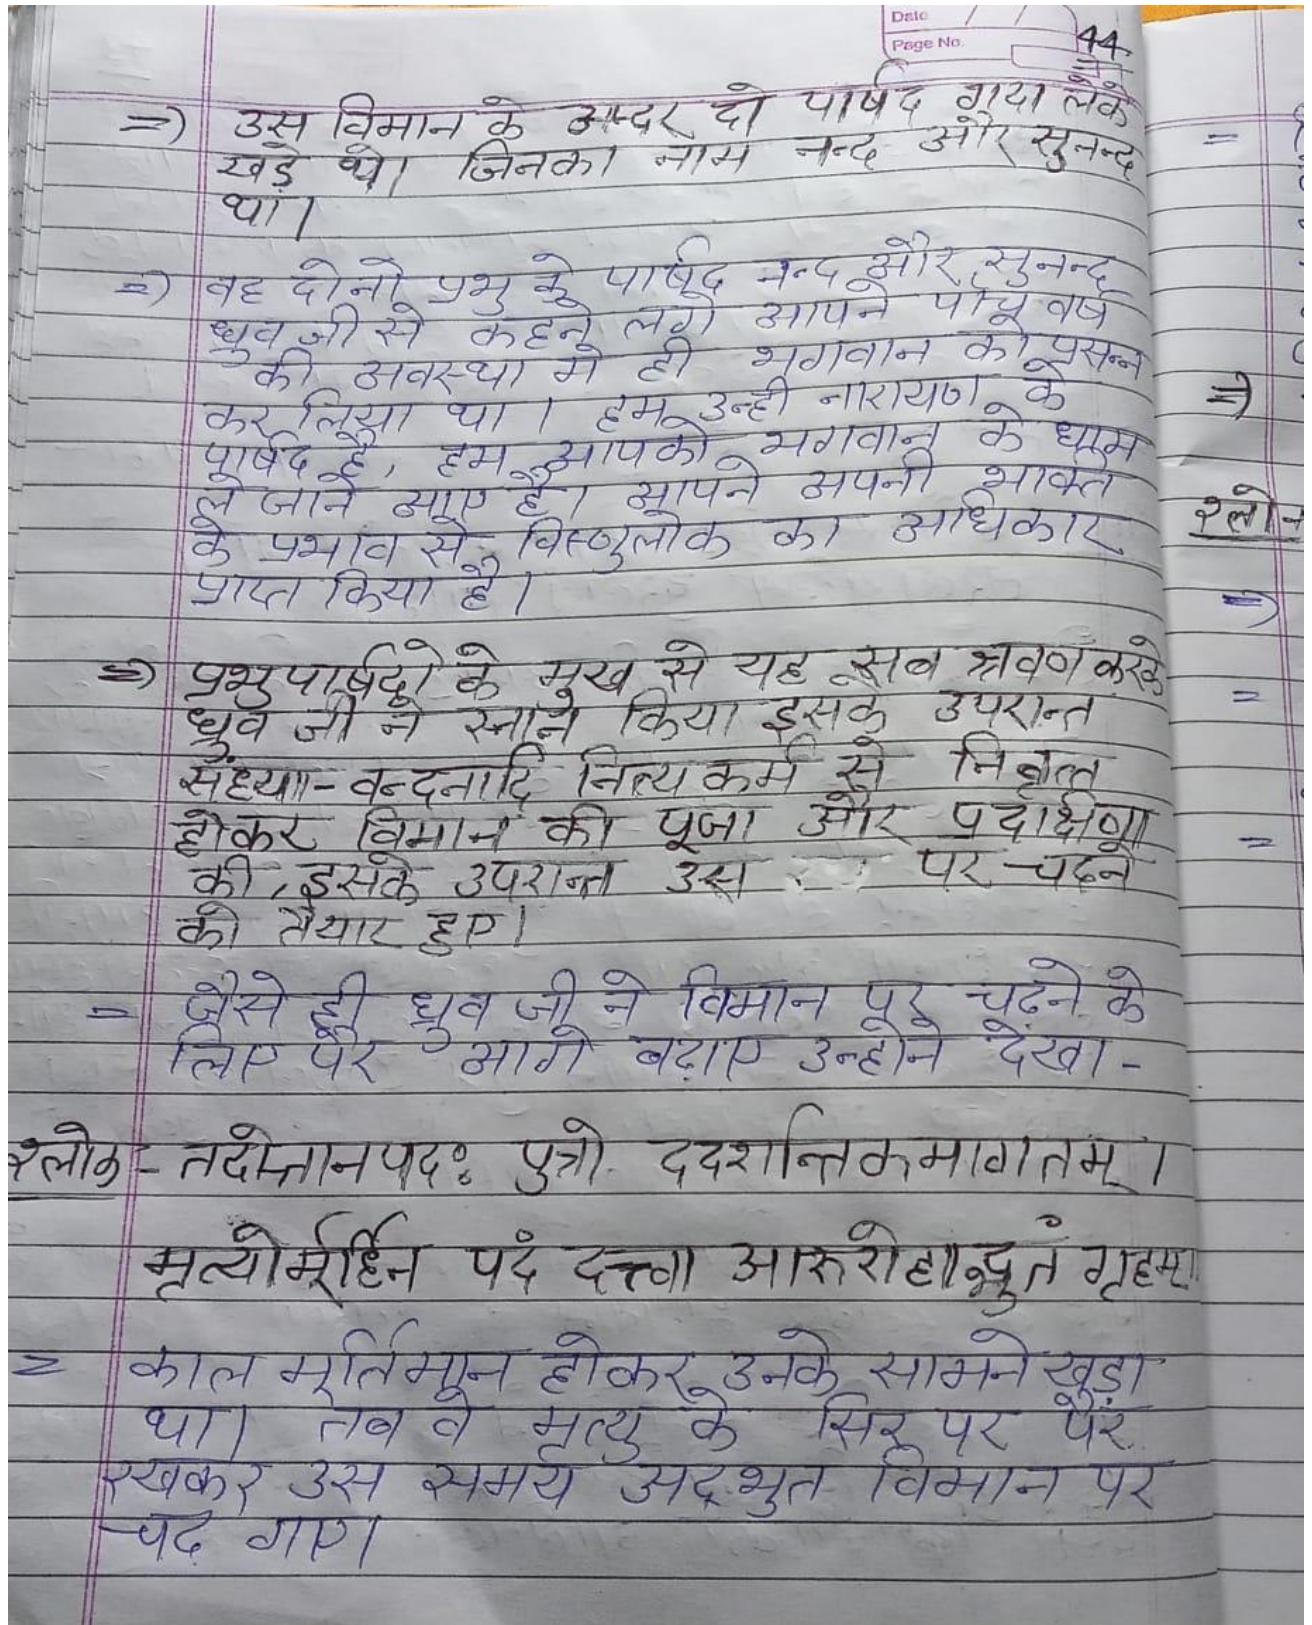 Date / /
Page No. 44
=) उस विमान के अन्दर दो पार्षद गदा लेके
खड़े थे। जिनका नाम नन्द और सुनन्द
था।
=) वह दोनो प्रभु के पार्षद नन्द और सुनन्द
ध्रुव जी से कहने लगे आपने पांच वर्ष
की अवस्था मे ही भगवान को प्रसन्न
कर लिया था। हम उन्ही नारायण के
पार्षद है, हम आपको भगवान के धाम
ले जाने आए है। आपने अपनी भक्ति
के प्रभाव से विष्णुलोक का अधिकार
प्राप्त किया है।
=) प्रभु पार्षदो के मुख से यह सब श्रवण करके
ध्रुव जी ने स्नान किया इसके उपरान्त
संध्या-वन्दनादि नित्य कर्म से निवृत्त
होकर विमान की पूजा और प्रदाक्षिणा
की, इसके उपरान्त उस पर चढने
को तैयार हुए।
= जैसे ही ध्रुव जी ने विमान पर चढने के
लिए पैर आगे बढ़ाए उन्होने देखा -
श्लोक - तदोत्तानपदः पुत्रो ददर्शान्तिकमागतम्।
मृत्योर्मूर्ध्नि पदं दत्त्वा आरुरोहाद्भुतं गृहम्।
= काल मूर्तिमान होकर उनके सामने खड़ा
था। तब वे मृत्यु के सिर पर पैर
रखकर उस समय अद्भुत विमान पर
चढ़ गए।
=
=)
=)
=
=